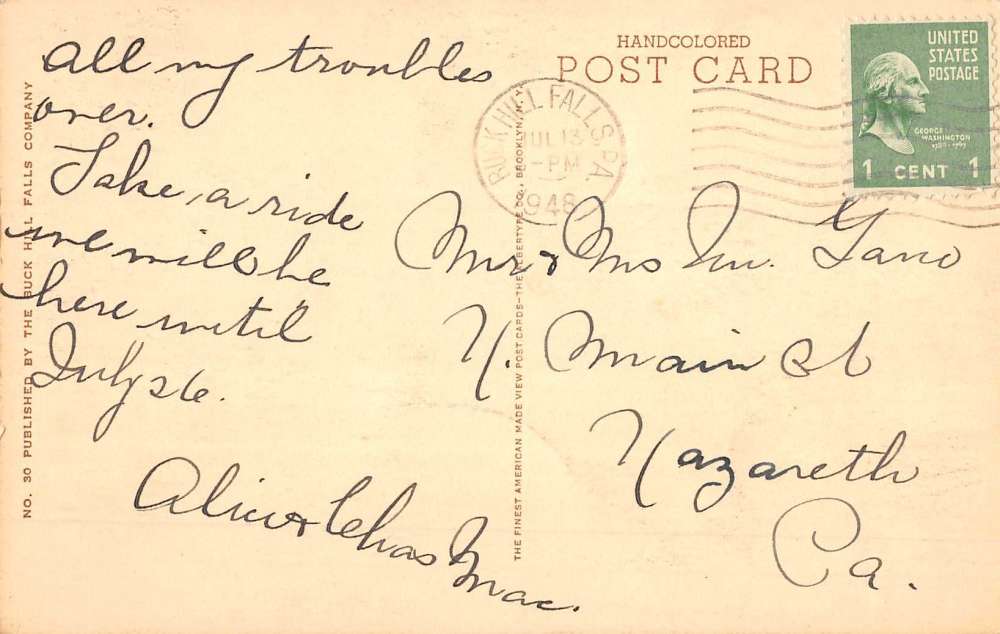 All my troubles
over.
Take a ride
we will be
here until
July 26.
Alice & Chas
Mac.
HANDCOLORED
POST CARD
BUCK HILL FALLS, PA.
JUL 13
-PM
1948
UNITED
STATES
POSTAGE
GEORGE
WASHINGTON
1 CENT 1
Mr & Mrs Wm. Gano
N. Main St
Nazareth
Pa.
NO. 30 PUBLISHED BY THE BUCK HILL FALLS COMPANY
THE FINEST AMERICAN MADE VIEW POST CARDS-THE ALBERTYPE CO., BROOKLYN, N.Y.